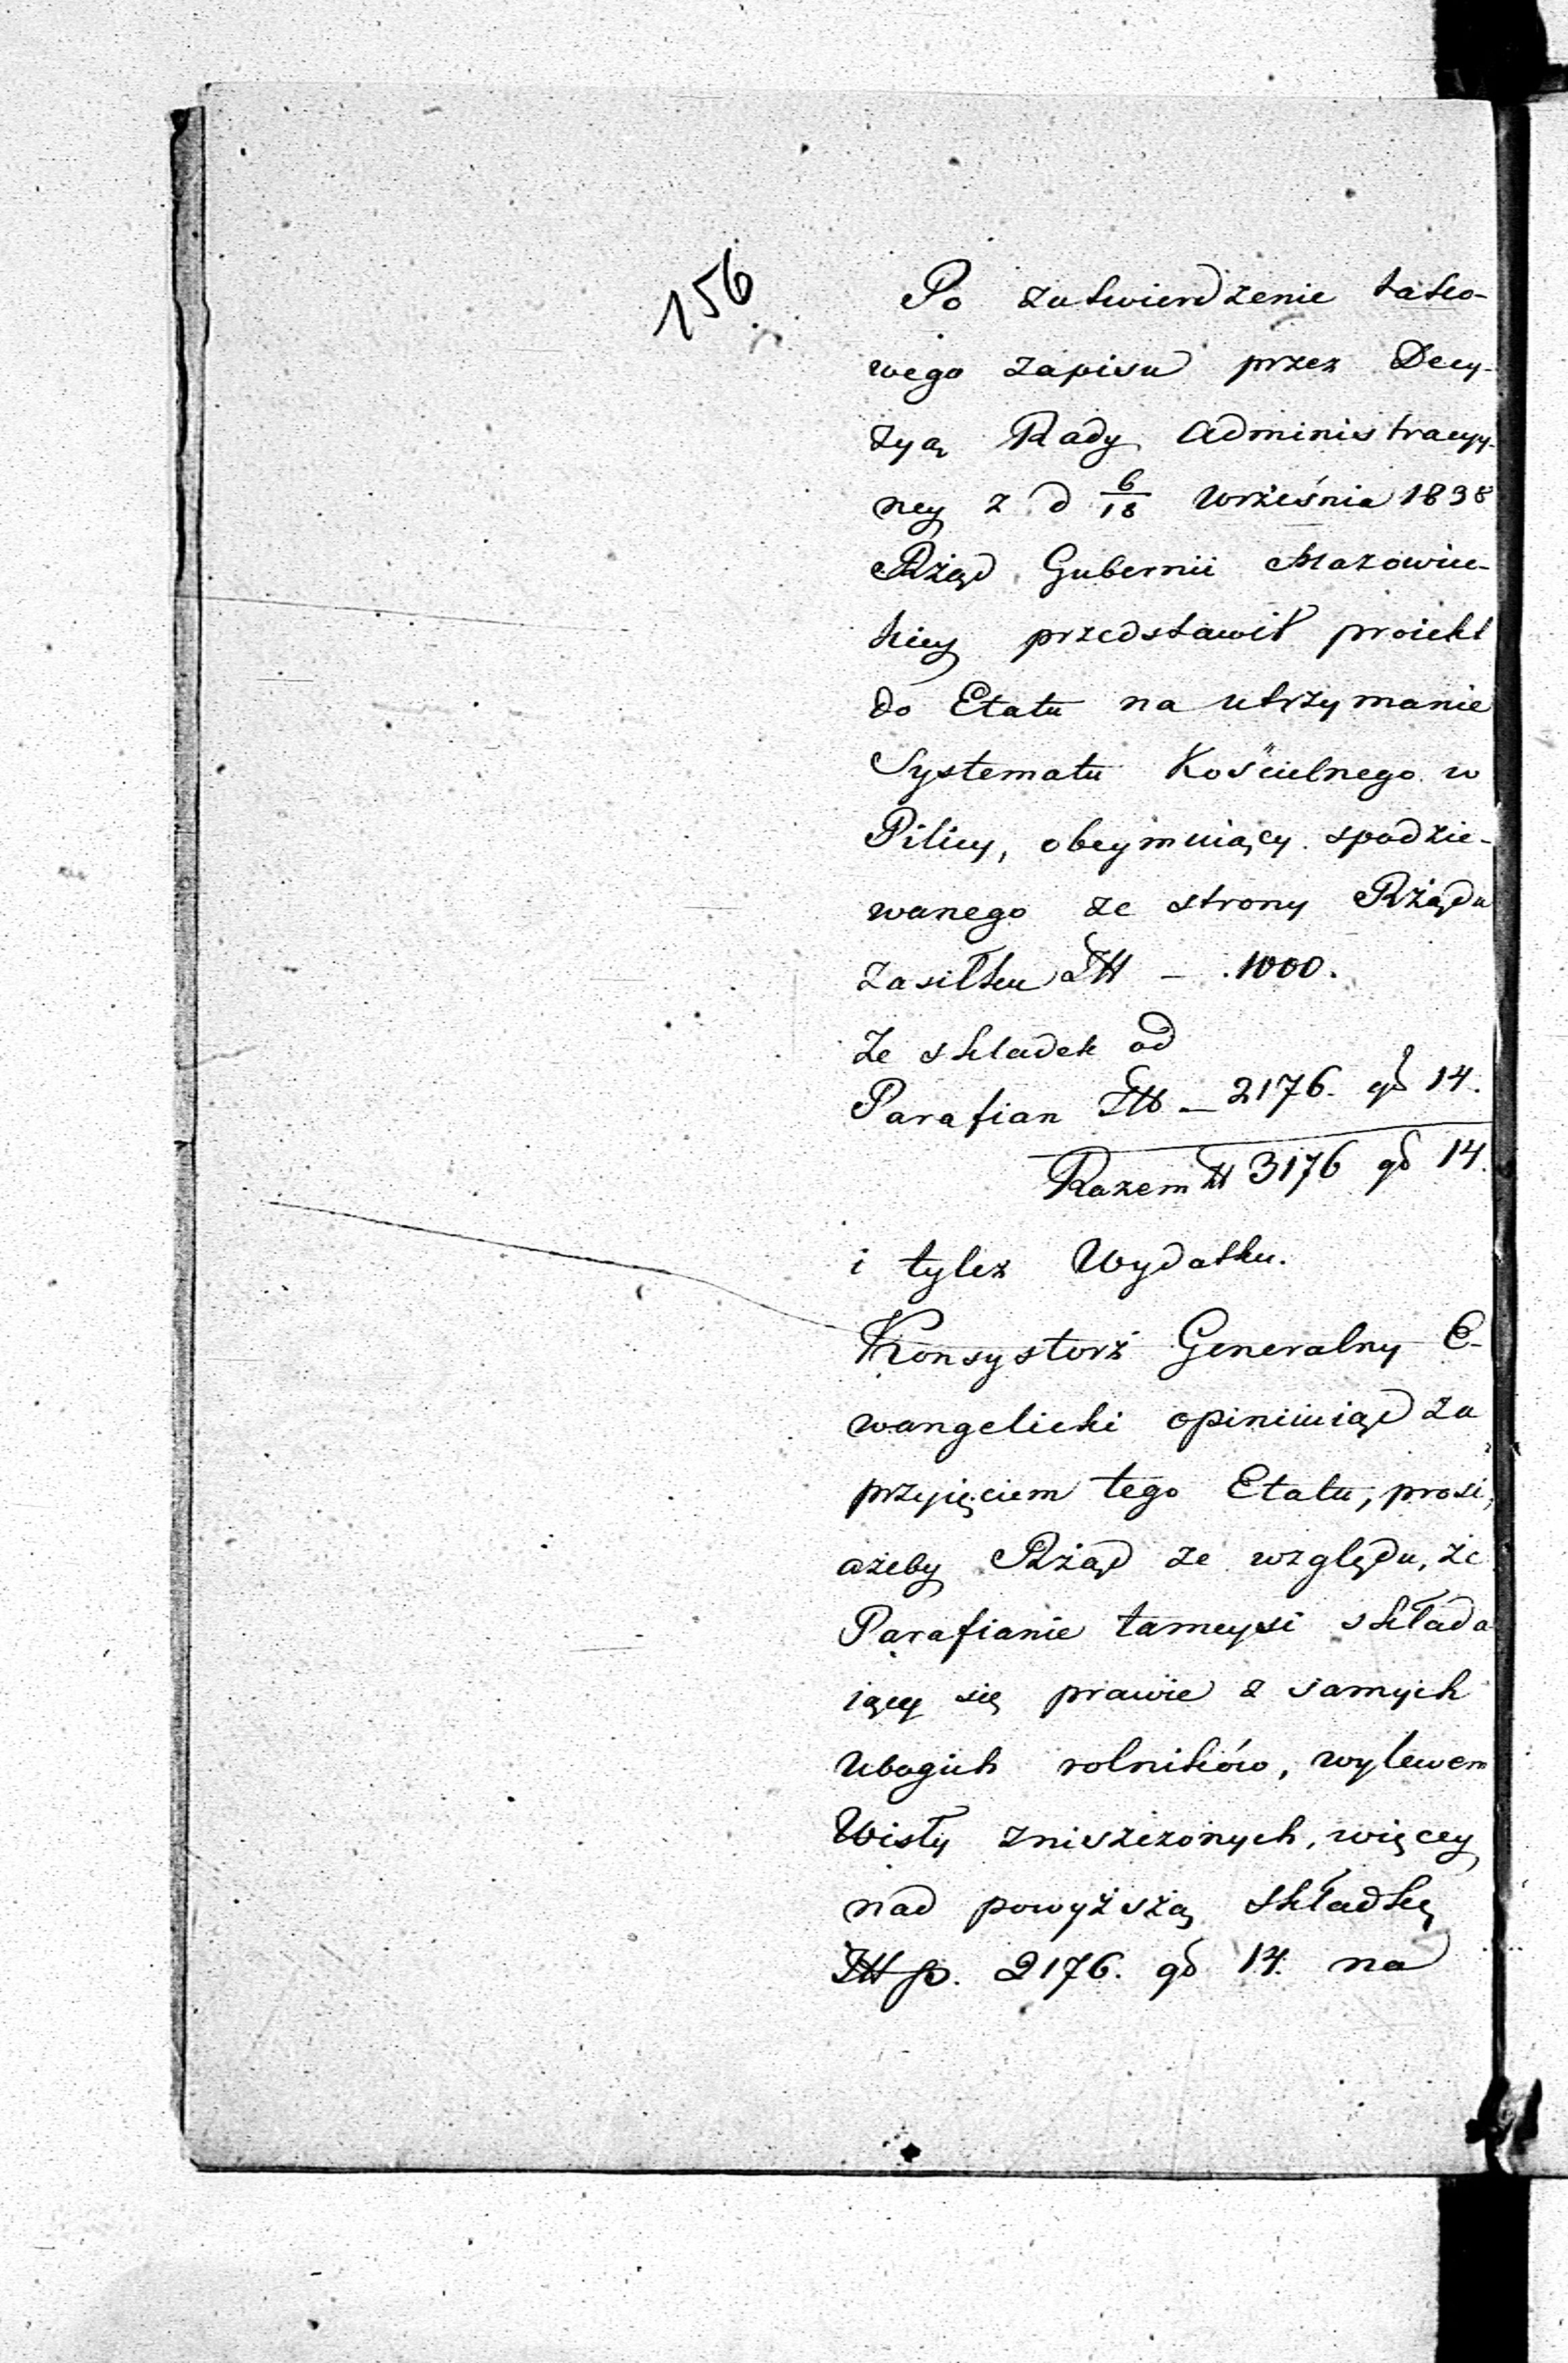 156
Po zatwierdzenie tako-
wego zapisu przez Decy-
zyą Rady Administracyy-
ney z d 6/18 Września 1838
Rżąd Gubernii Mazowiec-
kiey przedstawił proiekt
do Etatu na utrzymanie
Systematu Kościelnego w
Pilicy, obeymuiący spodzie-
wanego ze strony Rżądu
zasiłku Zł – 1000.
Ze składek od
Parafian Zł – 2176. gr 14.
Razem Zł 3176 gr 14.
i tyleż Wydatku.
Konsystorż Generalny E-
wangelicki opiniuiąc za
przyięciem tego Etatu, prosi,
ażeby Rżąd ze względu, że
Parafianie tameysi składa
iący się prawie z samych
Ubogich rolników, wylewem
Wisły zniszczonych, więcey
nad powyższą składkę
Zł p. 2176. gr 14. na